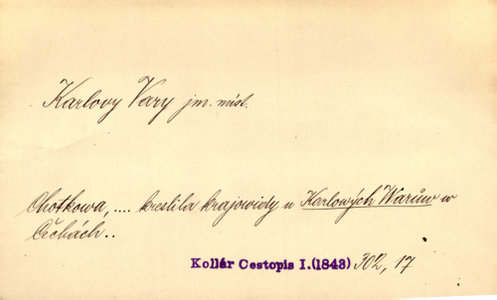 Karlovy Vary jm. míst.
Chotkowa, .... kreslila krajowidy u Karlowých Warůw w
Čechách..
Kollár Cestopis I.(1843) 302, 17